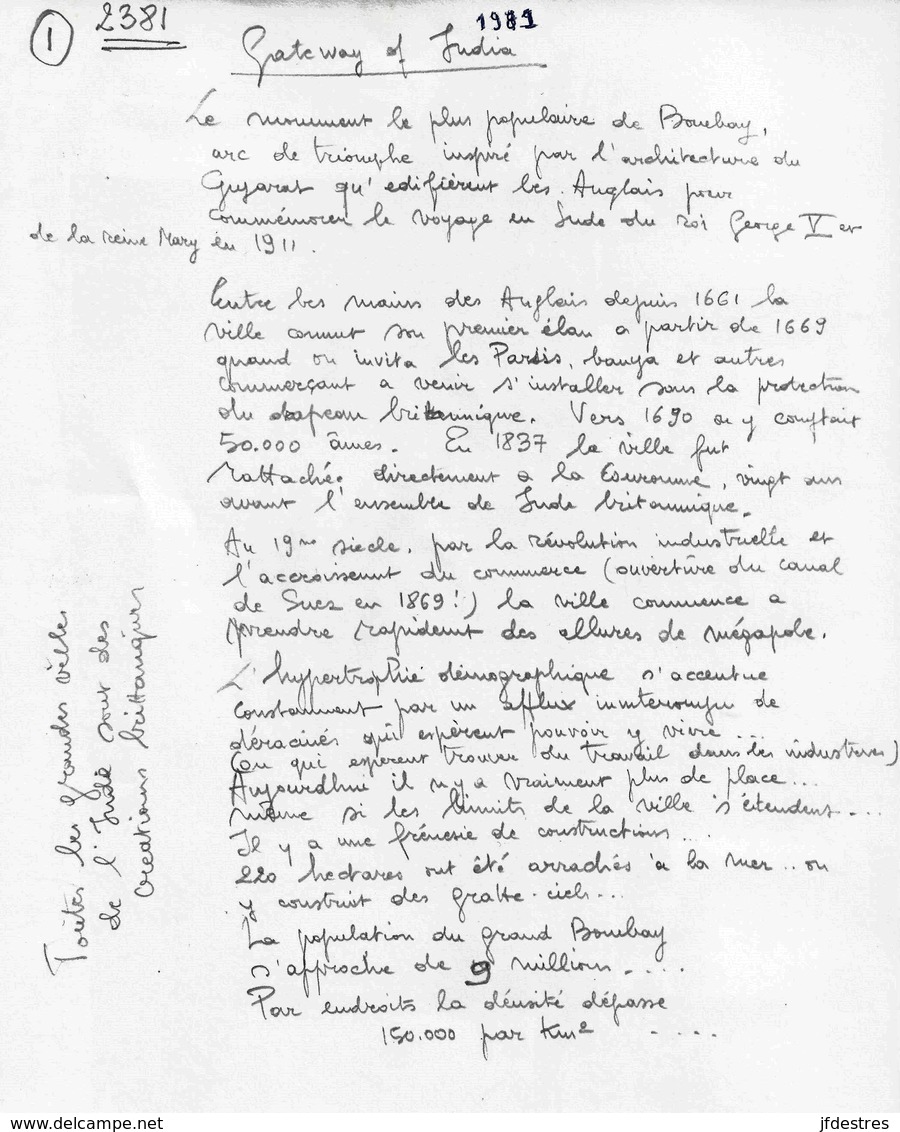 1
2381
1981
Gateway of India
Le monument le plus populaire de Bombay,
arc de triomphe inspiré par l'architecture du
Gujarat qu'edifièrent les Anglais pour
commémorer le voyage en Inde du roi George V et
de la reine Mary en 1911.
Entre les mains des Anglais depuis 1661 la
ville connut son premier élan a partir de 1669
quand on invita les Parsis, banya et autres
commerçant a venir s'installer sous la protection
du drapeau britannique. Vers 1690 on y comptait
50.000 âmes. En 1837 la ville fut
rattachée directement a la Couronne, vingt ans
avant l'ensemble de Inde britannique.
Au 19me siecle, par la révolution industrielle et
l'accroissement du commerce (ouverture du canal
de Suez en 1869!) la ville commence a
prendre rapidemt des allures de mégapole.
L'hypertrophie démographique s'accentue
constamment par un afflux ininterrompu de
déracinés qui espèrent pouvoir y vivre ...
(ou qui espèrent trouver du travail dans les industries)
Aujourdhui il n'y a vraiment plus de place...
même si les limits de la ville s'étendent....
Il y a une frénesie de constructions....
220 hectares ont été arrachés à la mer.. on
y construit des gratte-ciels...
La population du grand Bombay
s'approche de 9 millions.....
Par endroits la densité dépasse
150.000 par Km² .....
Toutes les grandes villes
de l'Inde sont des
creations brittaniques
www.delcampe.net
jfdestres